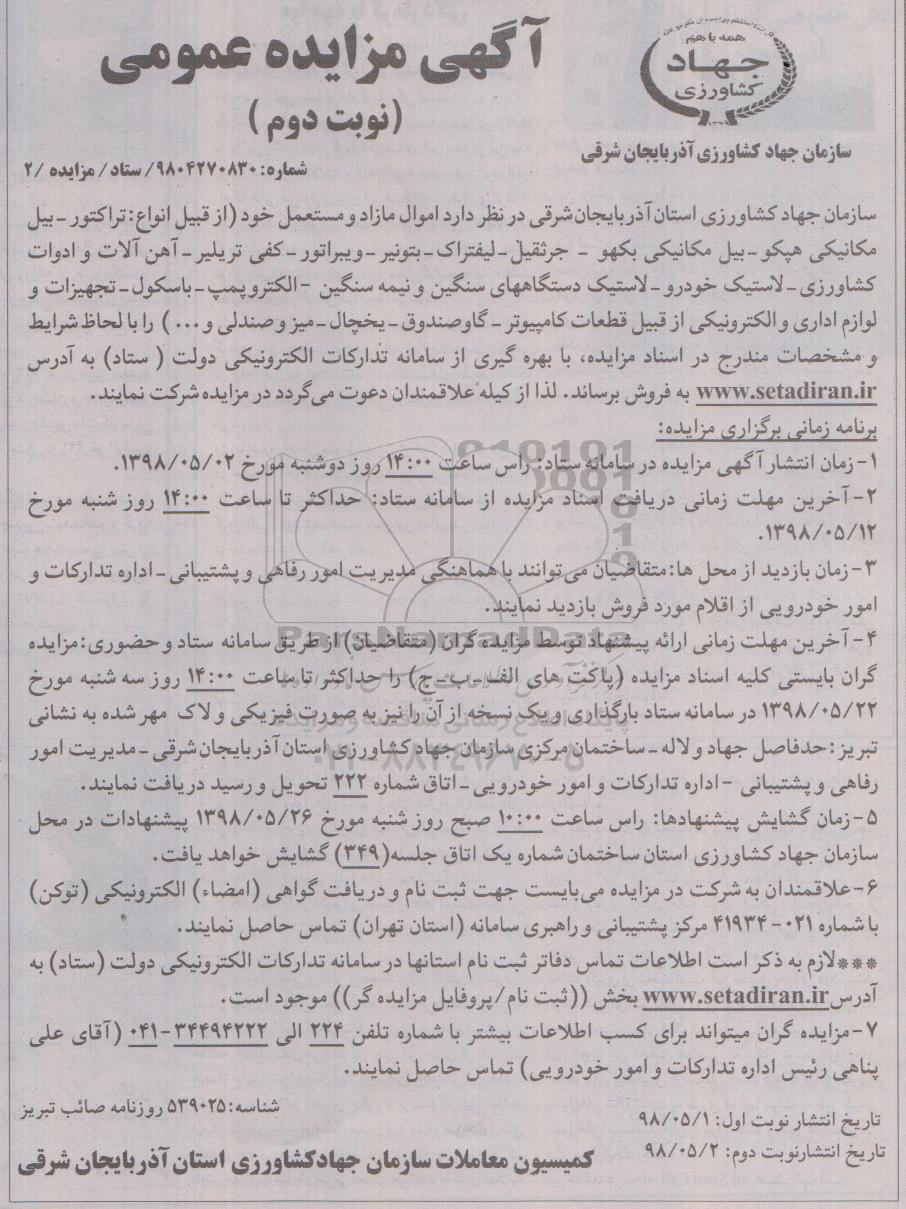 آگهی مزایده عمومی
(نوبت دوم)
همه با هم
جهاد
کشاورزی
سازمان جهاد کشاورزی آذربایجان شرقی
شماره: ۹۸۰۴۲۷۰۸۳۰/ ستاد / مزایده /۲
سازمان جهاد کشاورزی استان آذربایجان شرقی در نظر دارد اموال مازاد و مستعمل خود (از قبیل انواع: تراکتور - بیل
مکانیکی هپکو - بیل مکانیکی بکهو - جرثقیل - لیفتراک - بتونیر - ویبراتور - کفی تریلیر - آهن آلات و ادوات
کشاورزی - لاستیک خودرو - لاستیک دستگاههای سنگین و نیمه سنگین - الکتروپمپ - باسکول - تجهیزات و
لوازم اداری و الکترونیکی از قبیل قطعات کامپیوتر - گاوصندوق - یخچال - میز و صندلی و ...) را با لحاظ شرایط
و مشخصات مندرج در اسناد مزایده، با بهره گیری از سامانه تدارکات الکترونیکی دولت ( ستاد) به آدرس
www.setadiran.ir به فروش برساند. لذا از کیله علاقمندان دعوت می‌گردد در مزایده شرکت نمایند.
برنامه زمانی برگزاری مزایده:
۱- زمان انتشار آگهی مزایده در سامانه ستاد: راس ساعت ۱۴:۰۰ روز دوشنبه مورخ ۱۳۹۸/۰۵/۰۲.
۲- آخرین مهلت زمانی دریافت اسناد مزایده از سامانه ستاد: حداکثر تا ساعت ۱۴:۰۰ روز شنبه مورخ
۱۳۹۸/۰۵/۱۲.
۳- زمان بازدید از محل ها: متقاضیان می‌توانند با هماهنگی مدیریت امور رفاهی و پشتیبانی - اداره تدارکات و
امور خودرویی از اقلام مورد فروش بازدید نمایند.
۴- آخرین مهلت زمانی ارائه پیشنهاد توسط مزایده گران (متقاضیان) از طریق سامانه ستاد و حضوری: مزایده
گران بایستی کلیه اسناد مزایده (پاکت های الف - ب - ج) را حداکثر تا ساعت ۱۴:۰۰ روز سه شنبه مورخ
۱۳۹۸/۰۵/۲۲ در سامانه ستاد بارگذاری و یک نسخه از آن را نیز به صورت فیزیکی و لاک مهر شده به نشانی
تبریز: حدفاصل جهاد و لاله - ساختمان مرکزی سازمان جهاد کشاورزی استان آذربایجان شرقی - مدیریت امور
رفاهی و پشتیبانی - اداره تدارکات و امور خودرویی - اتاق شماره ۲۲۲ تحویل و رسید دریافت نمایند.
۵- زمان گشایش پیشنهادها: راس ساعت ۱۰:۰۰ صبح روز شنبه مورخ ۱۳۹۸/۰۵/۲۶ پیشنهادات در محل
سازمان جهاد کشاورزی استان ساختمان شماره یک اتاق جلسه(۳۴۹) گشایش خواهد یافت.
۶- علاقمندان به شرکت در مزایده می‌بایست جهت ثبت نام و دریافت گواهی (امضاء) الکترونیکی (توکن)
با شماره ۰۲۱-۴۱۹۳۴ مرکز پشتیبانی و راهبری سامانه (استان تهران) تماس حاصل نمایند.
***لازم به ذکر است اطلاعات تماس دفاتر ثبت نام استانها در سامانه تدارکات الکترونیکی دولت (ستاد) به
آدرس www.setadiran.ir بخش ((ثبت نام / پروفایل مزایده گر)) موجود است.
۷- مزایده گران میتواند برای کسب اطلاعات بیشتر با شماره تلفن ۲۲۴ الی ۳۴۴۹۴۲۲۲-۰۴۱ (آقای علی
پناهی رئیس اداره تدارکات و امور خودرویی) تماس حاصل نمایند.
شناسه: ۵۳۹۰۲۵ روزنامه صائب تبریز
تاریخ انتشار نوبت اول: ۹۸/۰۵/۱
تاریخ انتشارنوبت دوم: ۹۸/۰۵/۲
کمیسیون معاملات سازمان جهادکشاورزی استان آذربایجان شرقی